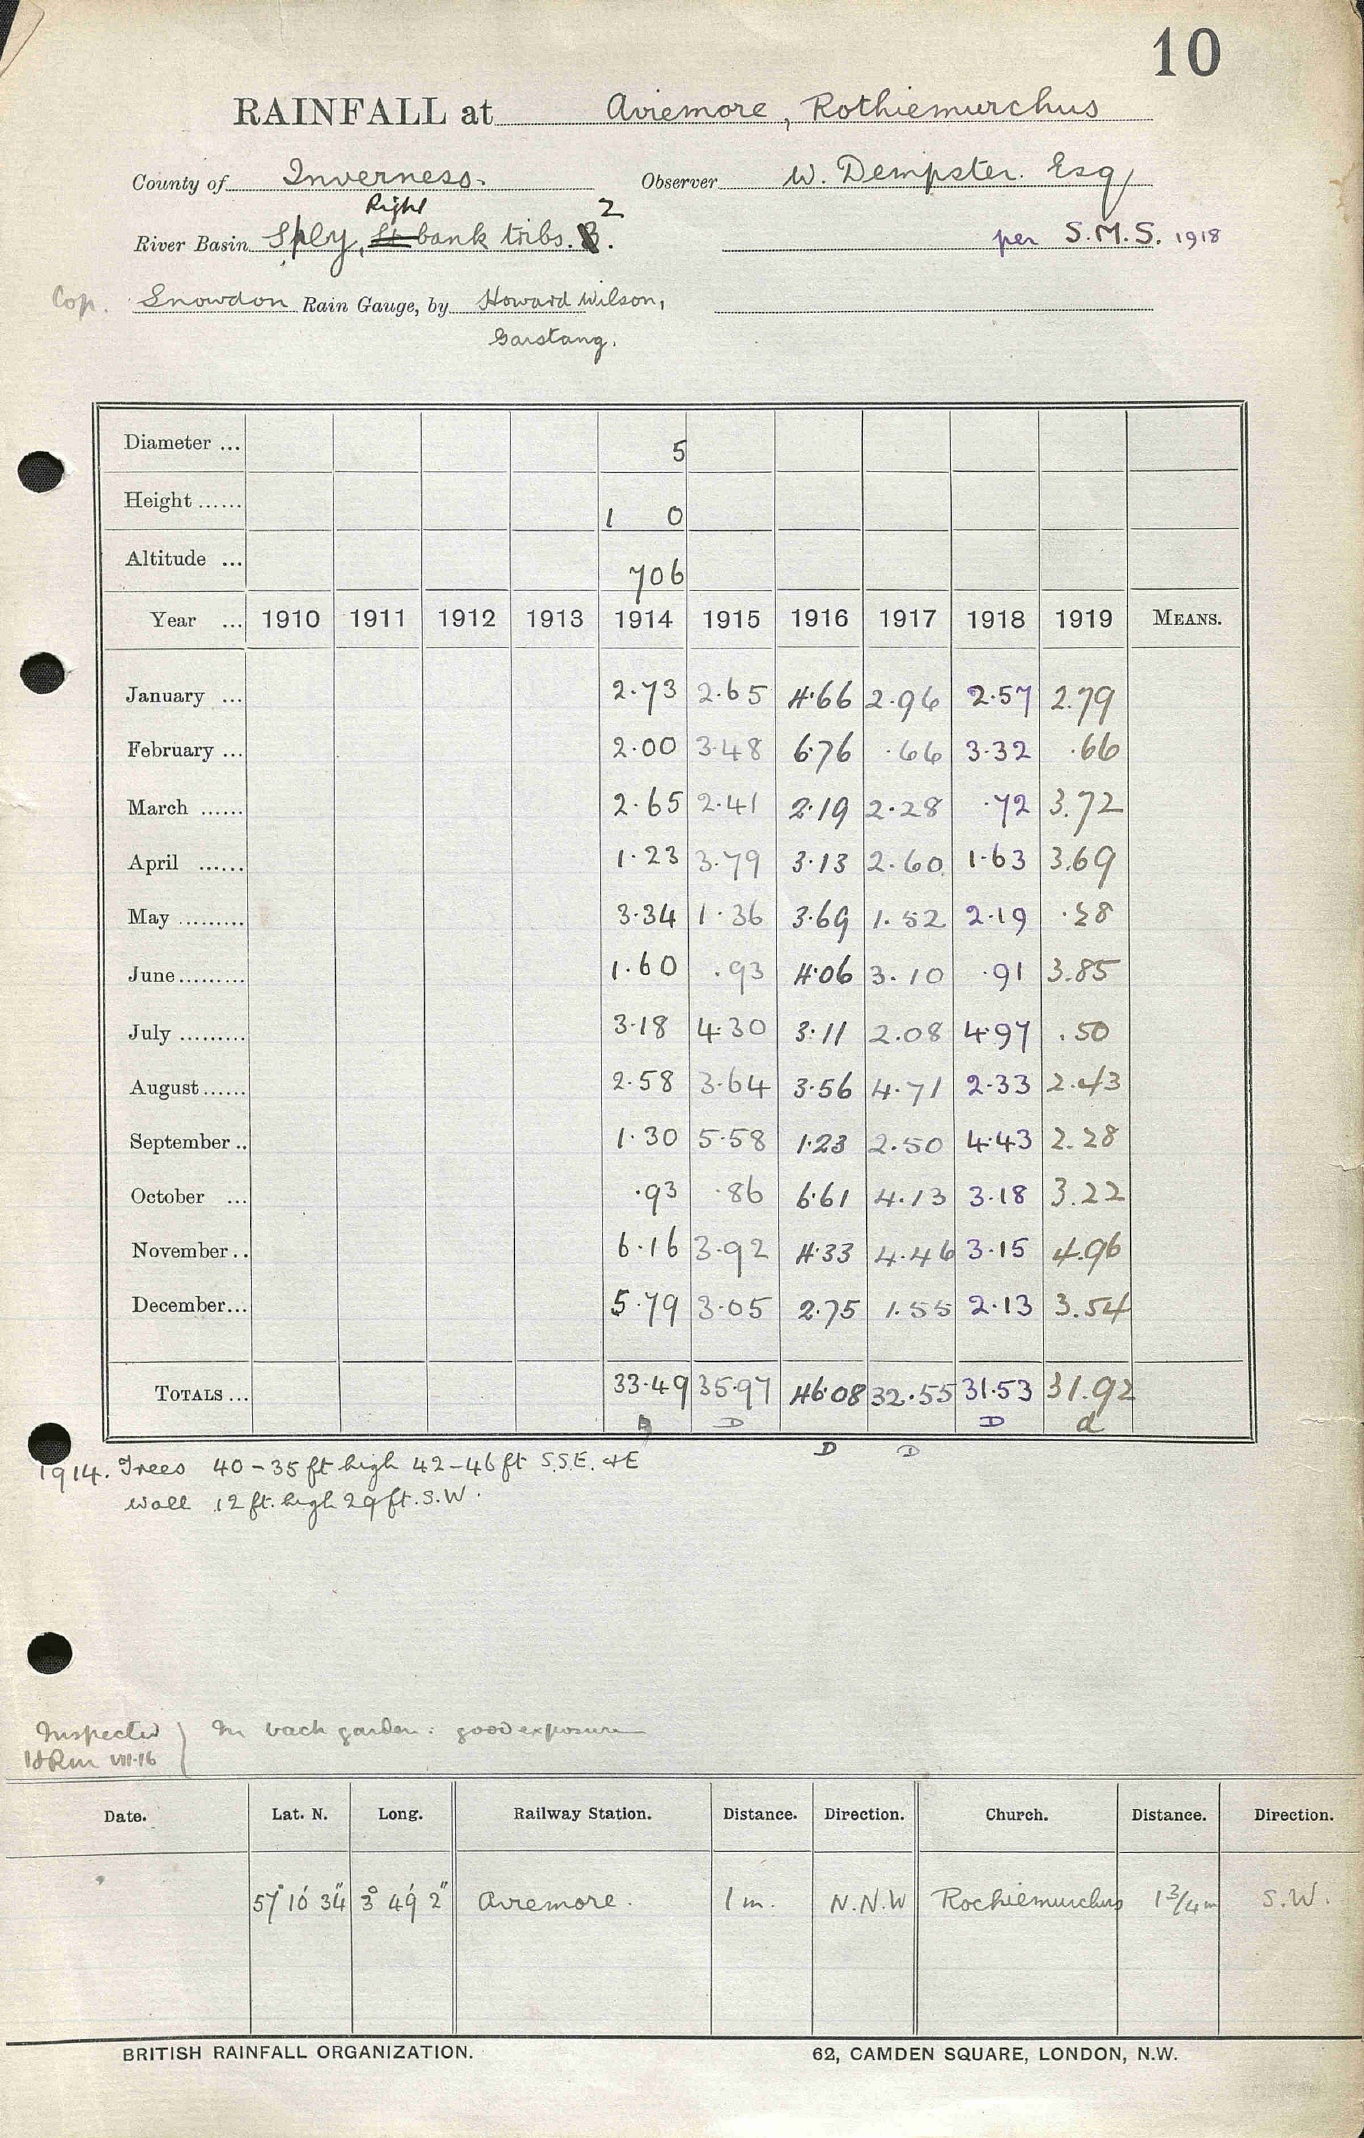 10
RAINFALL at Aviemore, Rothiemurchus
County of Inverness. Observer W. Dempster. Esq
Right 2
River Basin Spey, Lt bank tribs. B. per S.M.S. 1918
Cop. Snowdon Rain Gauge, by Howard Wilson,
Garstang.
Diameter ... 5
Height ...... 1 0
Altitude ... 706
Year ... 1910 1911 1912 1913 1914 1915 1916 1917 1918 1919 MEANS.
January ... 2.73 2.65 4.66 2.96 2.57 2.79
February ... 2.00 3.48 6.76 .66 3.32 .66
March ...... 2.65 2.41 2.19 2.28 .72 3.72
April ...... 1.23 3.79 3.13 2.60 1.63 3.69
May ......... 3.34 1.36 3.69 1.52 2.19 .28
June......... 1.60 .93 4.06 3.10 .91 3.85
July ......... 3.18 4.30 3.11 2.08 4.97 .50
August...... 2.58 3.64 3.56 4.71 2.33 2.43
September .. 1.30 5.58 1.23 2.50 4.43 2.28
October ... .93 .86 6.61 4.13 3.18 3.22
November .. 6.16 3.92 4.33 4.46 3.15 4.96
December... 5.79 3.05 2.75 1.55 2.13 3.54
TOTALS ... 33.49 35.97 46.08 32.55 31.53 31.92
D D D D d
1914. Trees 40-35 ft high 42-46 ft S.S.E. & E
Wall 12 ft. high 29 ft. S.W.
Inspected } In back garden: good exposure
HRM VIII-16
Date. Lat. N. Long. Railway Station. Distance. Direction. Church. Distance. Direction.
57° 10' 34" 3° 49' 2" Aviemore. 1 m. N.N.W Rothiemurchus 1 3/4 m S.W.
BRITISH RAINFALL ORGANIZATION. 62, CAMDEN SQUARE, LONDON, N.W.